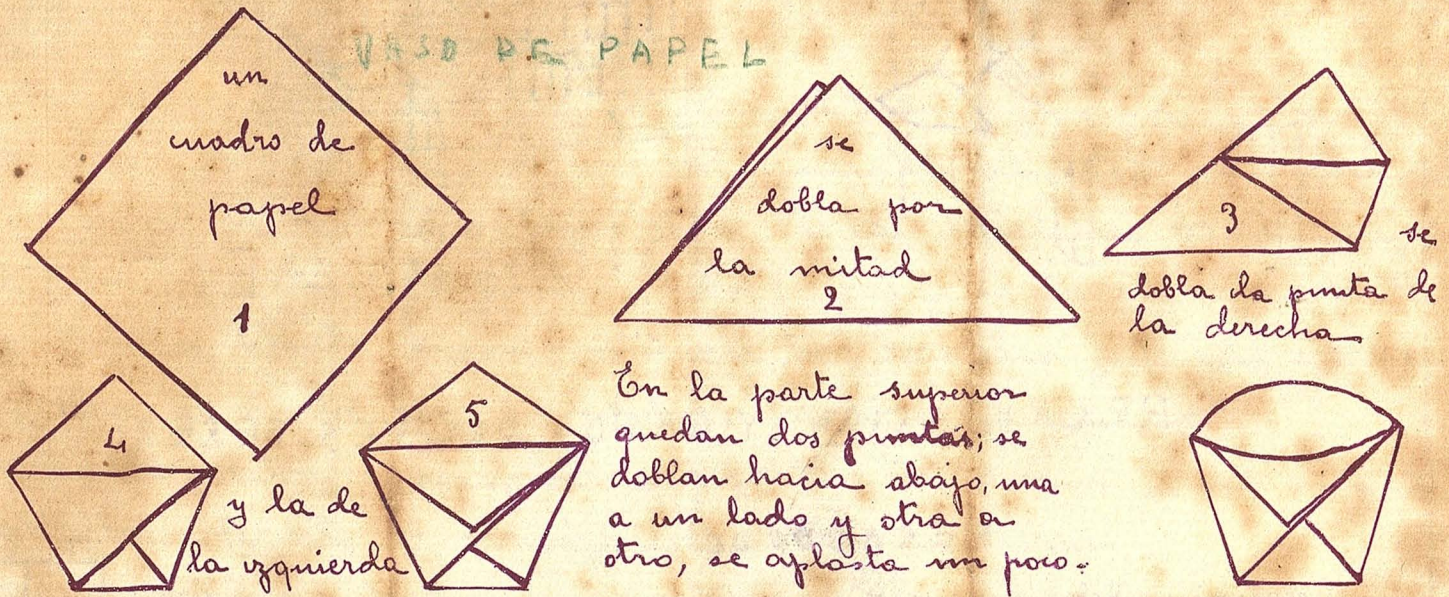 VASO DE PAPEL
un
cuadro de
papel
1
se
dobla por
la mitad
2
3
se
dobla la punta de
la derecha
4
y la de
la izquierda
5
En la parte superior
quedan dos puntas; se
doblan hacia abajo, una
a un lado y otra a
otro, se aplasta un poco.